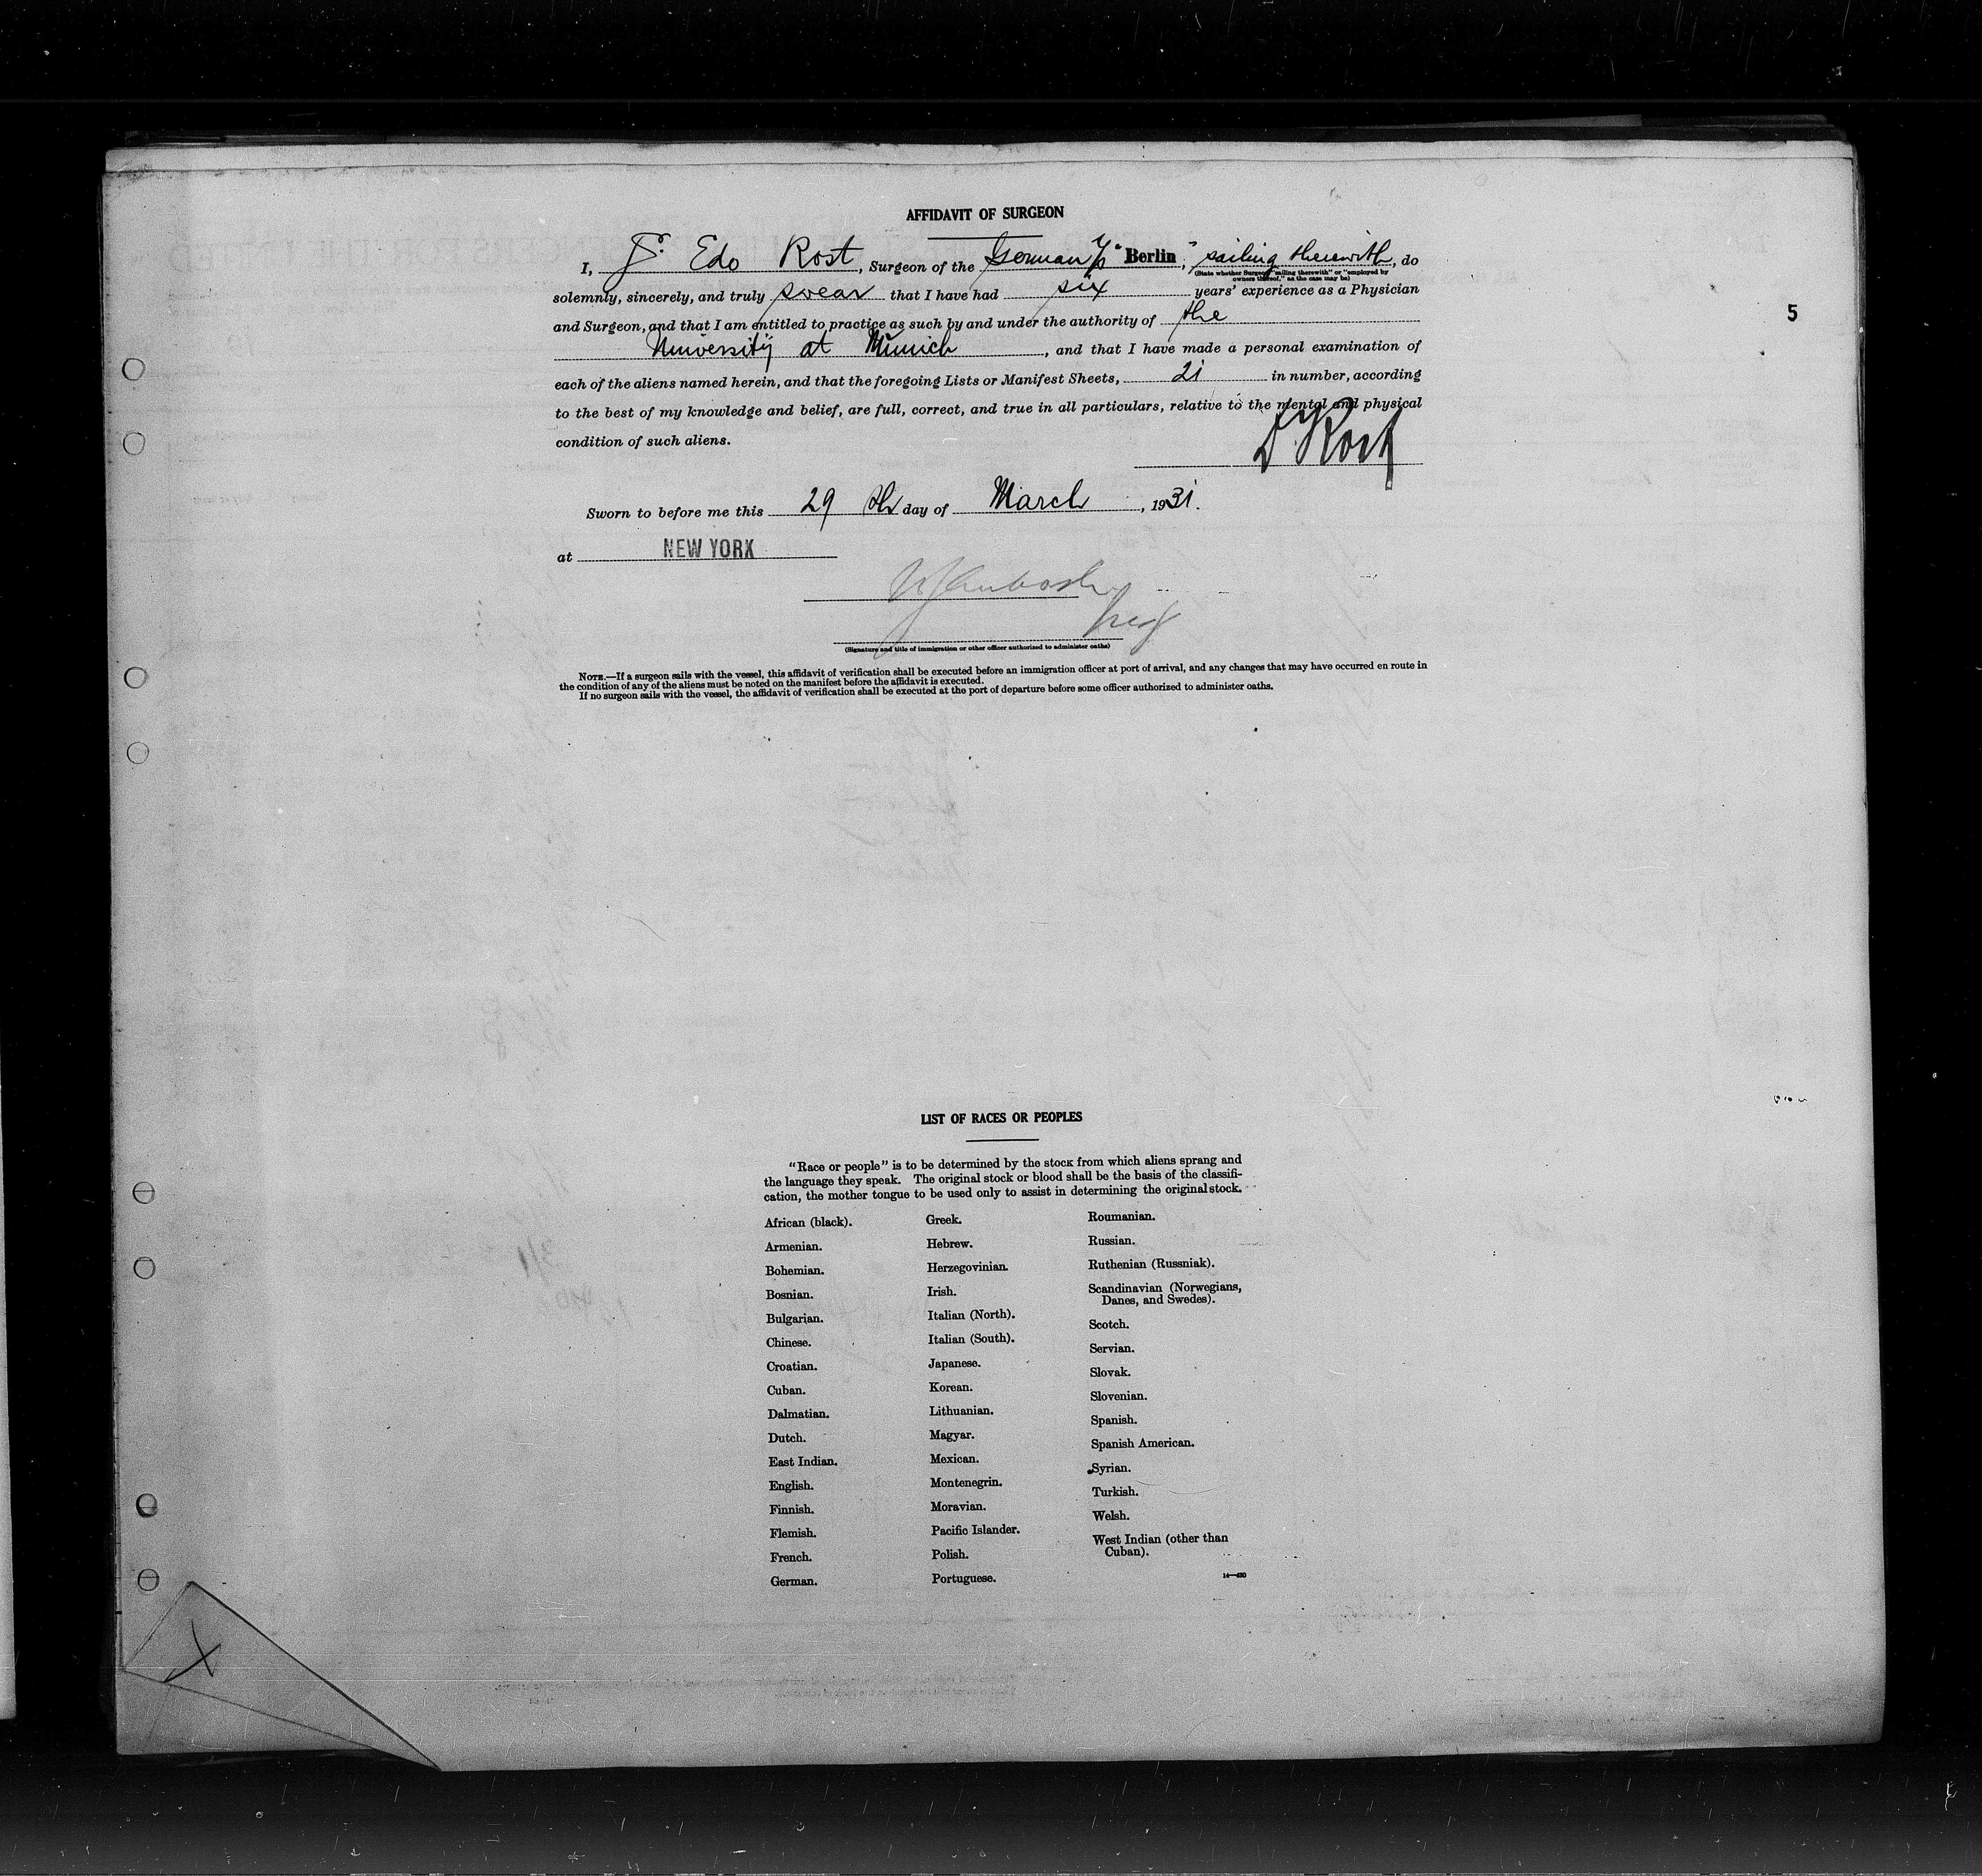 AFFIDAVIT OF SURGEON
I, Edo Rost, Surgeon of the German S/S "Berlin", sailing therewith, do
(State whether Surgeon "sailing therewith" or "employed by
owners thereof," as the case may be)
solemnly, sincerely, and truly swear that I have had six years' experience as a Physician
and Surgeon, and that I am entitled to practice as such by and under the authority of the
University at Munich, and that I have made a personal examination of
5
each of the aliens named herein, and that the foregoing Lists or Manifest Sheets, 21 in number, according
to the best of my knowledge and belief, are full, correct, and true in all particulars, relative to the mental and physical
condition of such aliens.
Dr Rost
Sworn to before me this 29 th day of March, 1931.
at NEW YORK
(Signature and title of immigration or other officer authorized to administer oaths)
NOTE.—If a surgeon sails with the vessel, this affidavit of verification shall be executed before an immigration officer at port of arrival, and any changes that may have occurred en route in
the condition of any of the aliens must be noted on the manifest before the affidavit is executed.
If no surgeon sails with the vessel, the affidavit of verification shall be executed at the port of departure before some officer authorized to administer oaths.
LIST OF RACES OR PEOPLES
"Race or people" is to be determined by the stock from which aliens sprang and
the language they speak. The original stock or blood shall be the basis of the classifi-
cation, the mother tongue to be used only to assist in determining the original stock.
African (black).
Armenian.
Bohemian.
Bosnian.
Bulgarian.
Chinese.
Croatian.
Cuban.
Dalmatian.
Dutch.
East Indian.
English.
Finnish.
Flemish.
French.
German.
Greek.
Hebrew.
Herzegovinian.
Irish.
Italian (North).
Italian (South).
Japanese.
Korean.
Lithuanian.
Magyar.
Mexican.
Montenegrin.
Moravian.
Pacific Islander.
Polish.
Portuguese.
Roumanian.
Russian.
Ruthenian (Russniak).
Scandinavian (Norwegians,
Danes, and Swedes).
Scotch.
Servian.
Slovak.
Slovenian.
Spanish.
Spanish American.
Syrian.
Turkish.
Welsh.
West Indian (other than
Cuban).
X